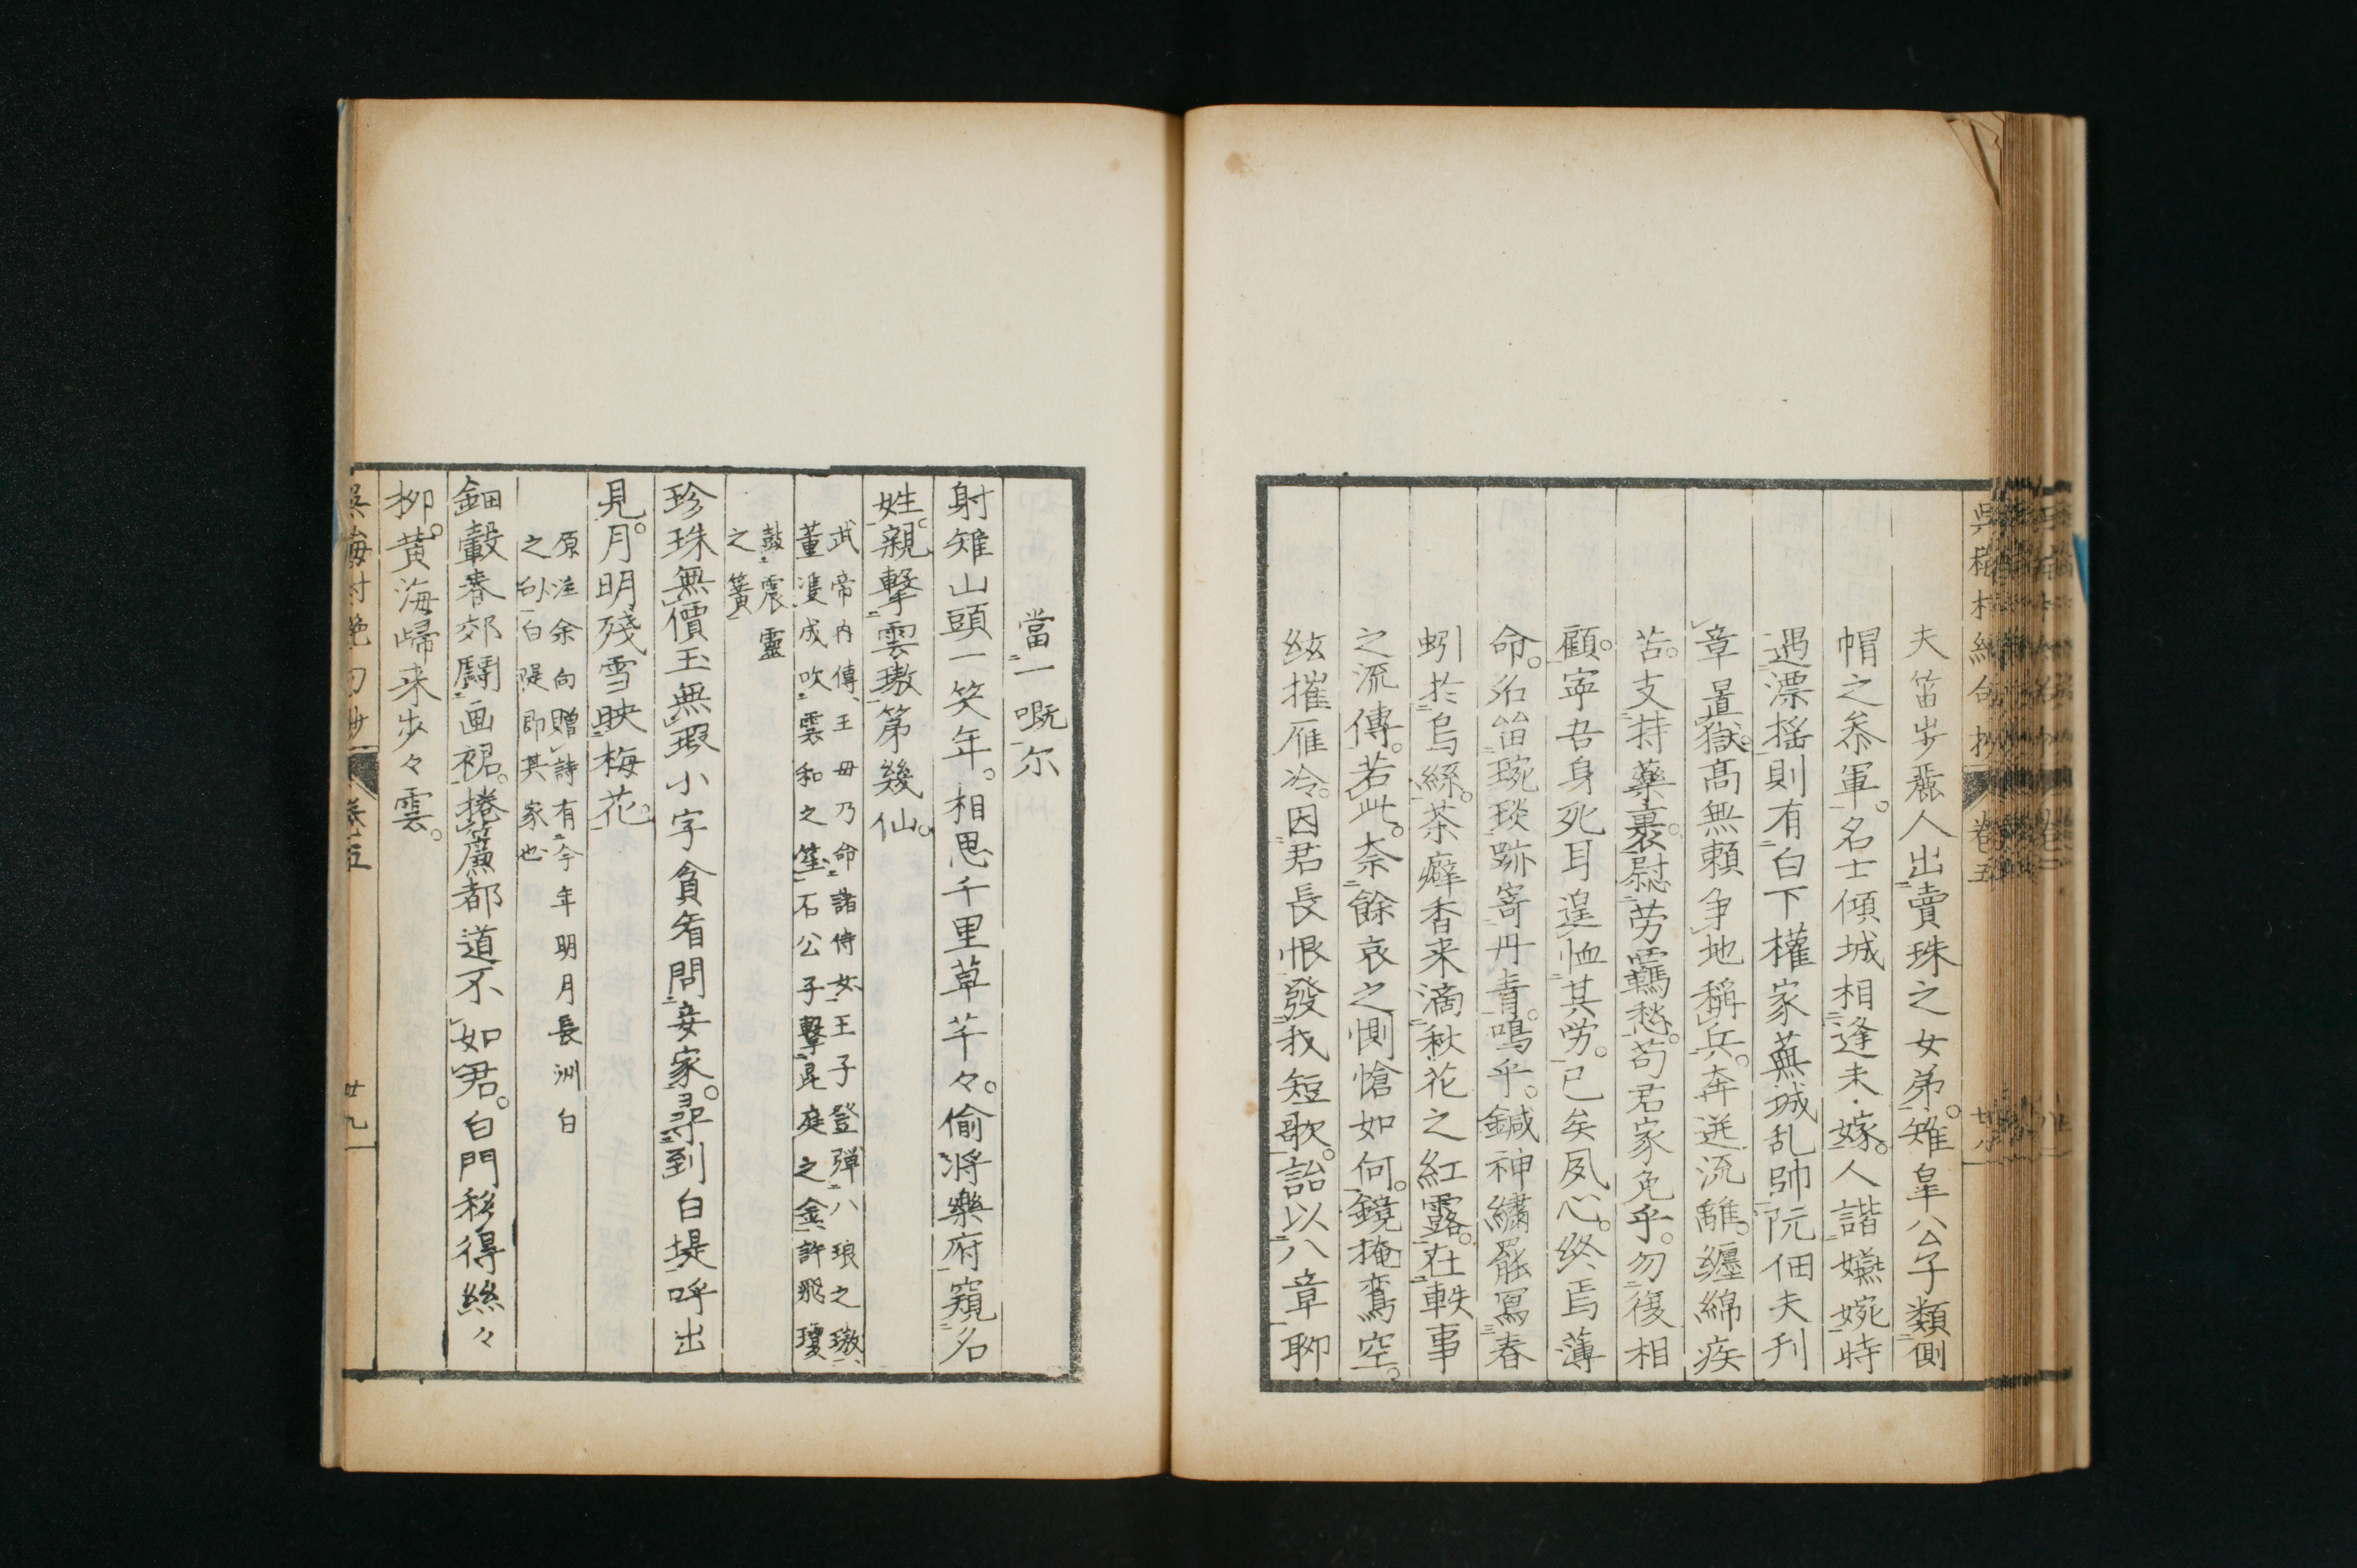 夫笛步麗人出賣珠之女弟。雉皐公子類側
帽之叅軍。名士傾城相逢未嫁。人諧嬿婉時
遇漂搖則有白下權家蕪城乱帥阮佃夫刋
章置獄。髙無賴爭地稱兵。奔迸流離。纏綿疾
苦。支持藥裹。慰劳羈愁。苟君家免乎。勿復相
顧。寧吾身死耳遑恤其劳。已矣夙心。終焉薄
命。名留琬琰跡寄丹青。嗚乎。鍼神繡罷寫春
蚓於烏絲。茶癖香来滴秋花之紅露。在軼事
之流傳。若此。奈餘哀之惻愴如何。鏡掩鸞空。
絃摧雁冷。因君長恨發我短歌。詒以八章聊
當一嘅尓
射雉山頭一笑年。相思千里草芊々。偷將樂府窺名
姓。親擊雲璈第幾仙。
武帝内傳、王母乃命諸侍女王子登彈八琅之璈、
董雙成吹雲和之笙石公子擊昆庭之金許飛瓊
鼓震靈
之簧
珍珠無價玉無瑕小字貪看問妾家。尋到白堤呼出
見。月明殘雪映梅花。
原注余向贈詩有今年明月長洲白
之句白隄即其家也
鈿轂春郊鬪画裙。捲簾都道不如君。白門移得絲々
柳。黄海歸来步々雲。
卷五
廿九
卷五